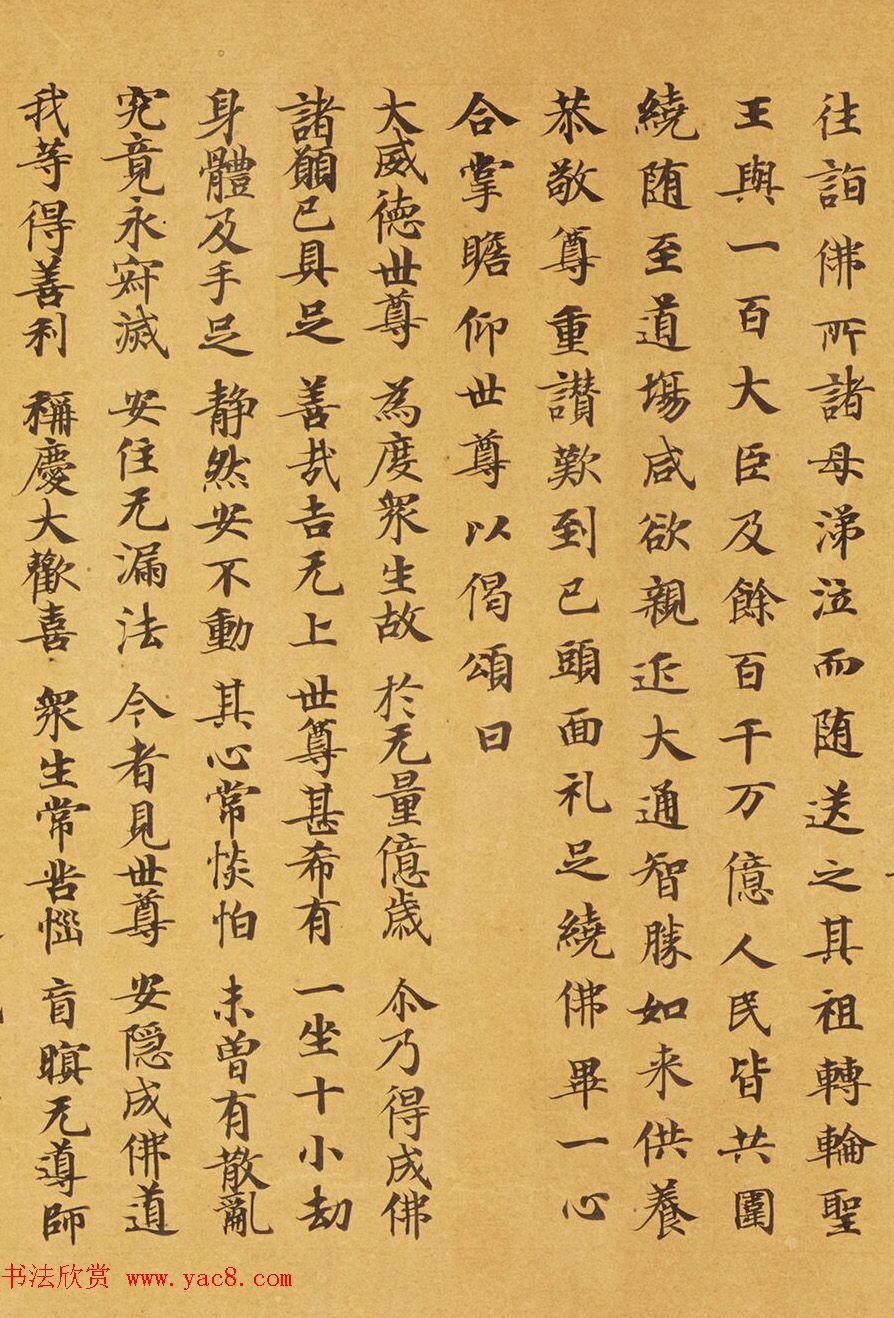 往詣佛所諸母涕泣而随送之其祖轉輪聖
王與一百大臣及餘百千万億人民皆共圍
繞随至道場咸欲親近大通智勝如来供養
恭敬尊重讃歎到已頭面礼足繞佛畢一心
合掌瞻仰世尊以偈頌曰
大威德世尊 為度衆生故 於无量億歳 尒乃得成佛
諸願已具足 善哉吉无上 世尊甚希有 一坐十小劫
身體及手足 静然安不動 其心常惔怕 未曽有散亂
究竟永寂滅 安住无漏法 今者見世尊 安隠成佛道
我等得善利 稱慶大歡喜 衆生常苦惱 盲瞑无導師
书法欣赏 www.yac8.com